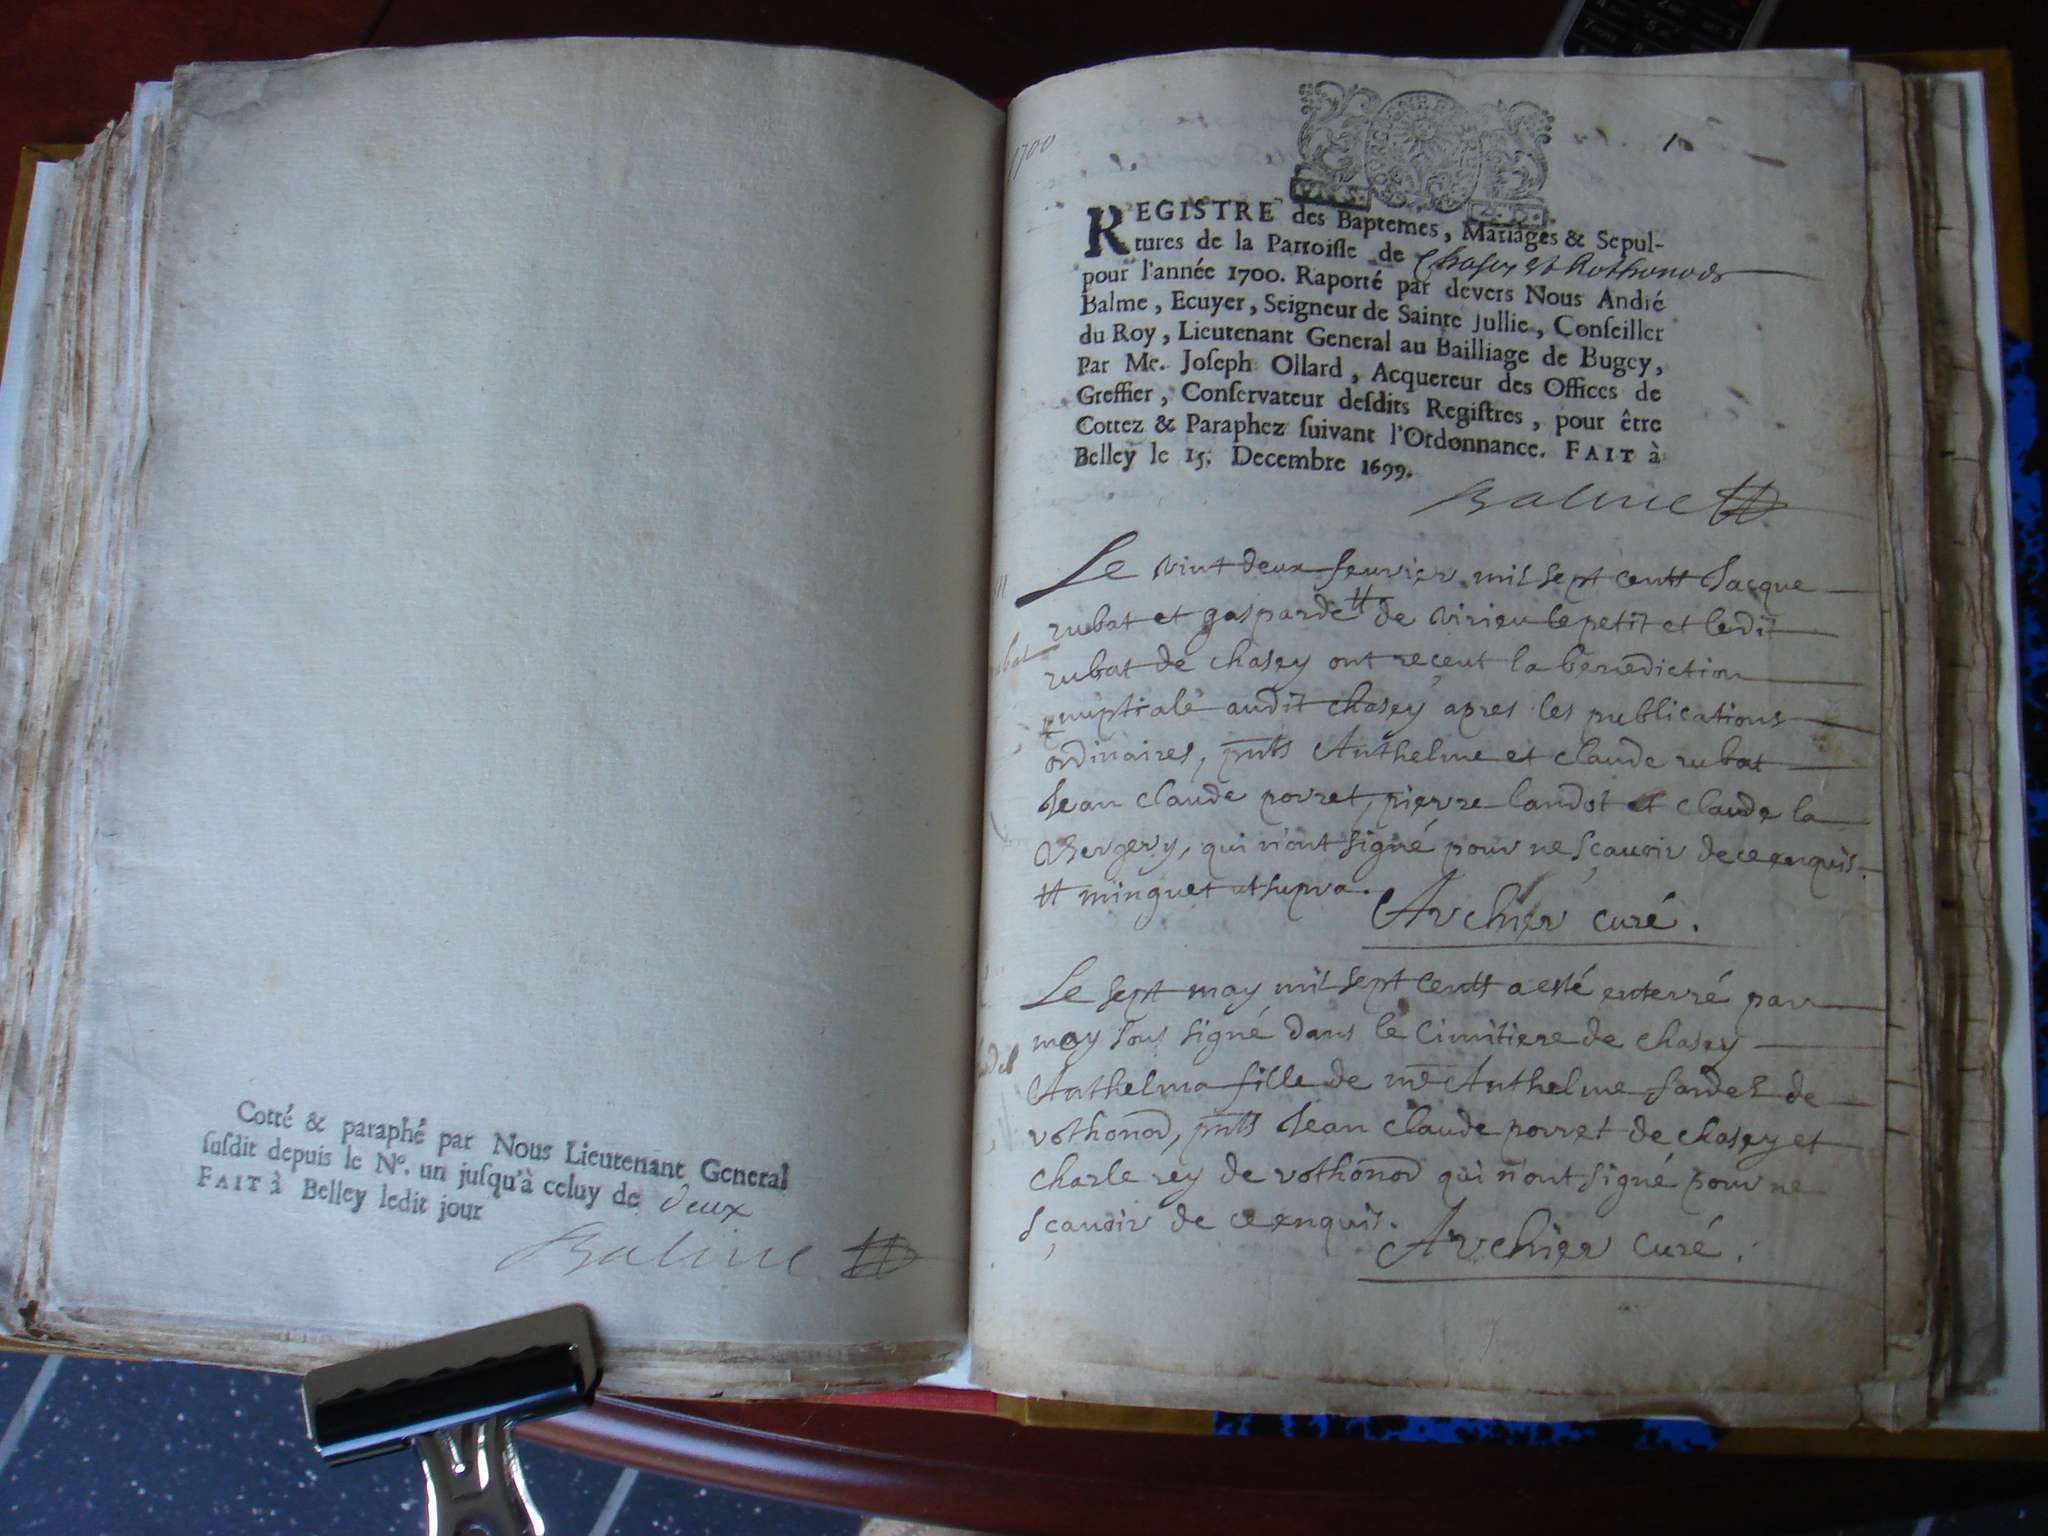 Cotté & paraphé par Nous Lieutenant General
susdit depuis le N°. un jusqu'à celuy de deux
FAIT à Belley ledit jour
Balme
1700
REGISTRE des Baptemes, Mariages & Sepul-
tures de la Parroisse de Chasey et Rothonods
pour l'année 1700. Raporté par devers Nous André
Balme, Ecuyer, Seigneur de Sainte Jullie, Conseiller
du Roy, Lieutenant General au Bailliage de Bugey,
Par Me. Joseph Ollard, Acquereur des Offices de
Greffier, Conservateur desdits Registres, pour être
Cottez & Paraphez suivant l'Ordonnance. FAIT à
Belley le 15. Decembre 1699.
Balme
Le vint deux feuvrier mil sept centt Jacque
rubat et gasparde tt de virieu le petit et ledit
rubat de chasey ont receut la benediction
nuptiale audit chasey apres les publications
ordinaires, pnts Anthelme et claude rubat
Jean claude porret, pierre landot et claude la
Vergery, qui n'ont signé pour ne sçauoir de ce enquis.
tt minguet ut supra.
Archier curé.
Le sept may mil sept centt a esté enterré par
moy sous signé dans le cimitiere de chasey
Anthelma fille de me Anthelme fardel de
rothonod, pnts Jean claude porret de chasey et
charle rey de rothonod qui n'ont signé pour ne
sçauoir de ce enquis.
Archier curé.